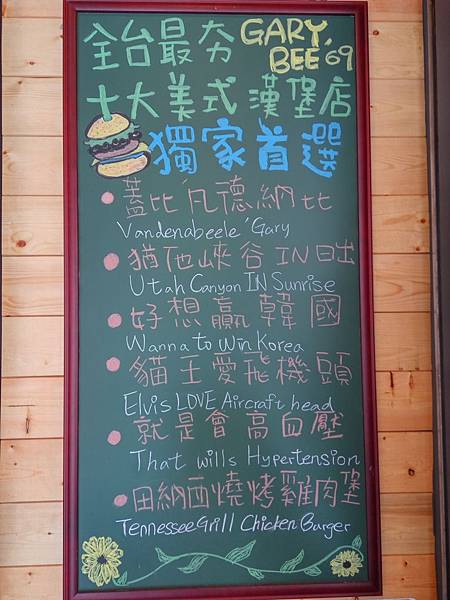 全台最夯 GARY.
BEE 69
十大美式漢堡店
獨家首選
蓋比 凡德納比
Vandenabeele 'Gary
猶他峽谷 IN 日出
Utah Canyon IN Sunrise
好想贏韓國
Wanna to win Korea
貓王愛飛機頭
Elvis LOVE Aircraft head
就是會高血壓
That wills Hypertension
田納西燒烤雞肉堡
Tennessee Grill Chicken Burger